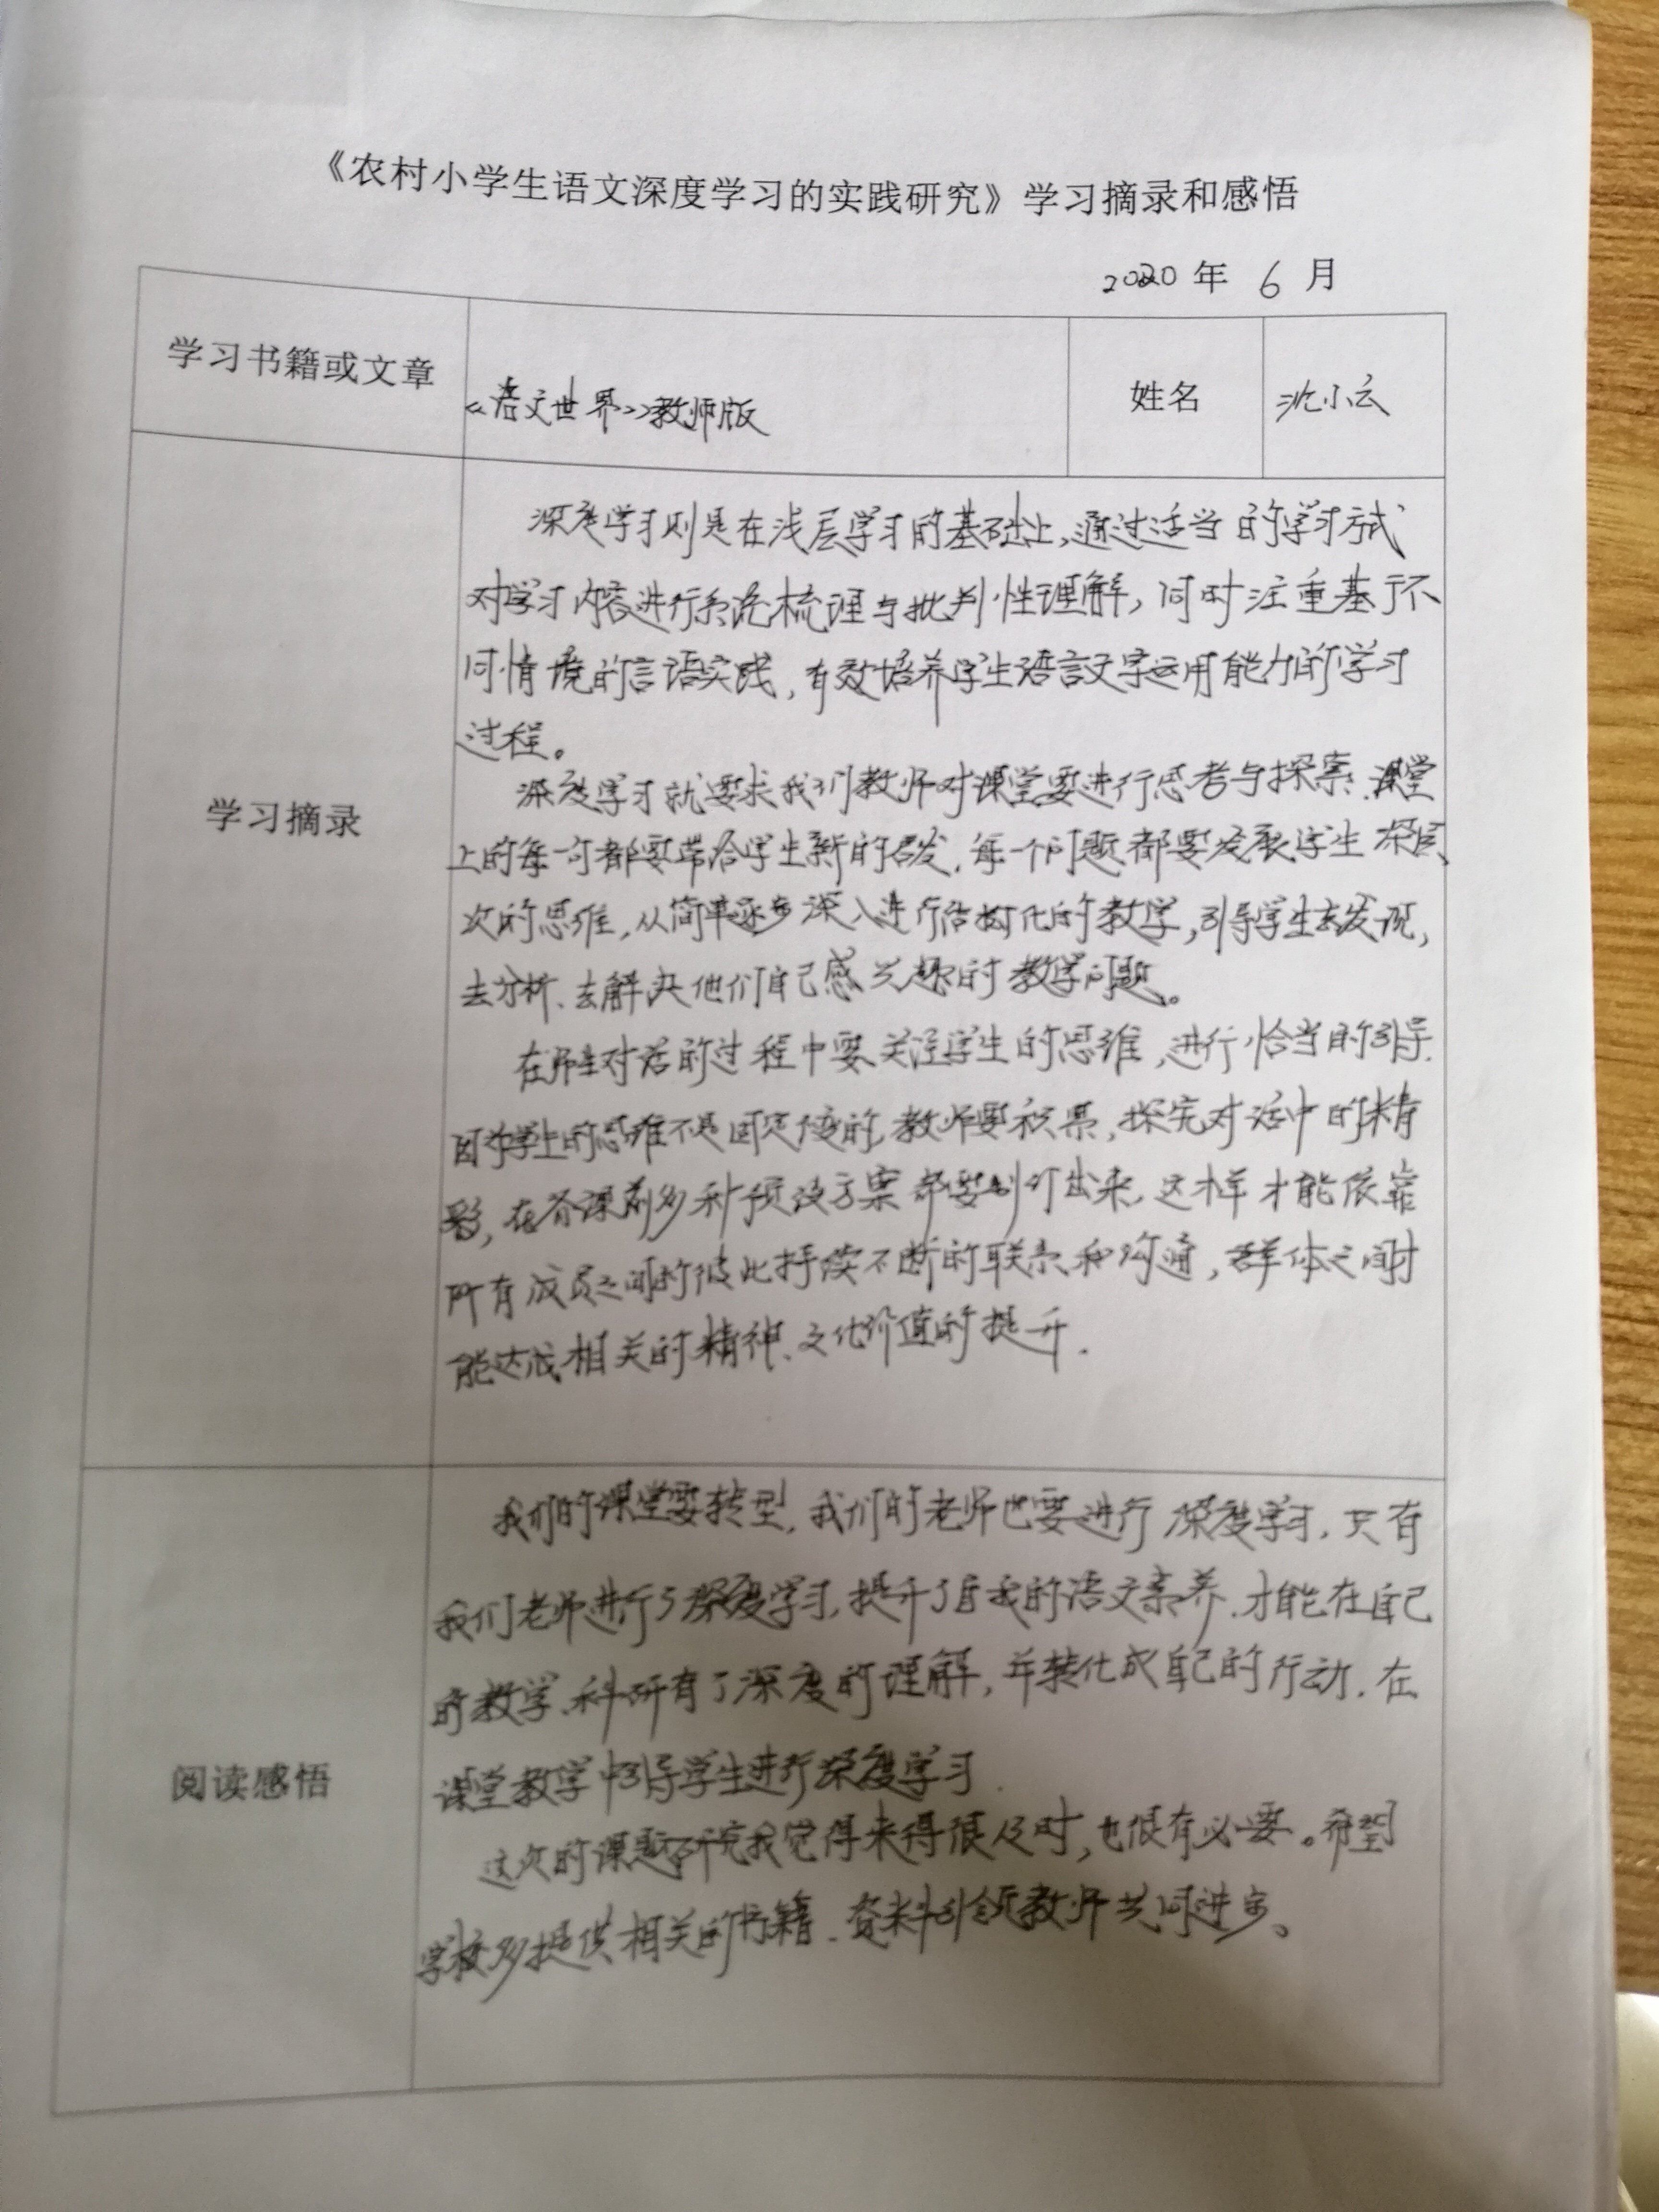 《农村小学生语文深度学习的实践研究》学习摘录和感悟
2020 年 6 月
学习书籍或文章
《语文世界》教师版
姓名
沈小云
学习摘录
深度学习则是在浅层学习的基础上,通过适当的学习方式
对学习内容进行系统梳理与批判性理解,同时注重基于不
同情境的言语实践,有效培养学生语言文字运用能力的学习
过程。
深度学习就要求我们教师对课堂要进行思考与探索.课堂
上的每一句都要带给学生新的启发,每一个问题都要发展学生深层
次的思维,从简单逐步深入进行结构化的教学,引导学生去发现,
去分析、去解决他们自己感兴趣的教学问题。
在师生对话的过程中要关注学生的思维,进行恰当的引导.
因为学生的思维不是固定不变的,教师要积累,探究对话中的精
彩,在备课前多种预设方案都要划打出来,这样才能依靠
所有成员之间的彼此持续不断的联系和沟通,群体之间才
能达成相关的精神、文化价值的提升.
阅读感悟
我们的课堂要转型,我们的老师也要进行深度学习,只有
我们老师进行了深度学习,提升了自我的语文素养.才能在自己
的教学、科研有了深度的理解,并转化成自己的行动.在
课堂教学中引导学生进行深度学习.
这次的课题研究我觉得来得很及时,也很有必要。希望
学校多提供相关的书籍.资料引领教师共同进步、